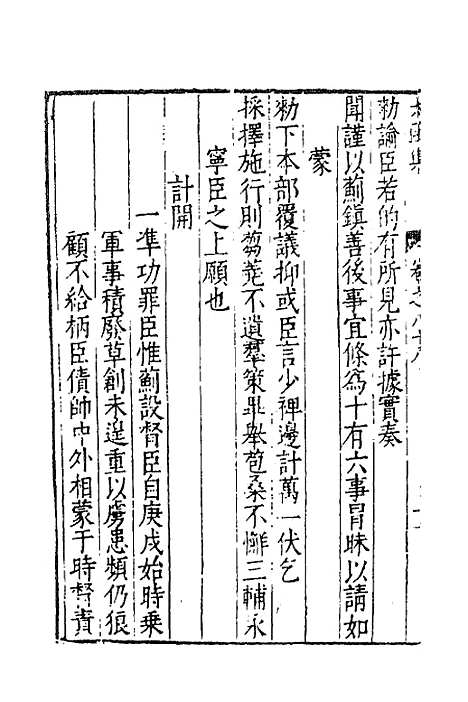 勑諭臣若的有所見亦許據實奏
聞謹以薊鎮善後事宜條爲十有六事冒昧以請如
蒙
勑下本部覆議抑或臣言少裨邊計萬一伏乞
採擇施行則芻蕘不遺羣策畢舉苞桑不懈三輔永
寧臣之上願也
計開
一準功罪臣惟薊設督臣自庚戌始時乗
軍事積廢草創未遑重以虜患頻仍狼
顧不給柄臣債帥中外相蒙于時督責